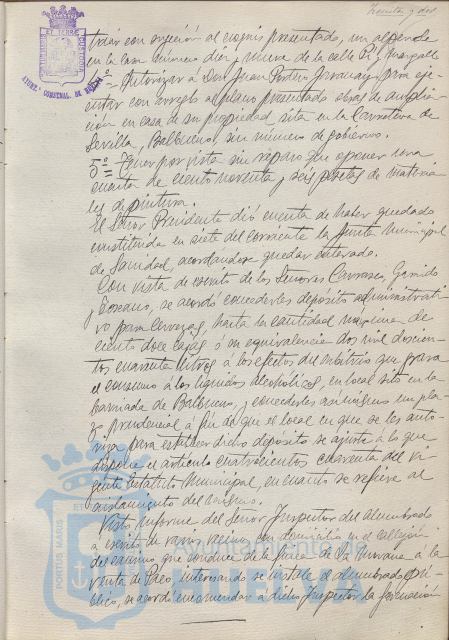 treinta y dos
AYUNT. CONSTNAL. DE HUELVA
truir con sujeción al croquis presentado, un alpende
en la casa número diez y nueve de la calle Pí y Margall
4º= Autorizar a Don Juan para eje-
cutar con arreglo al plano presentado obras de amplia-
ción en casa de su propiedad sita en la Carretera de
Sevilla, Balbueno, sin número de gobierno.
5º= Tener por vista sin reparo que oponer una
cuenta de ciento noventa y seis pesetas de materia
les de pintura.
El Señor Presidente dió cuenta de haber quedado
constituida en siete del corriente la Junta Municipal
de Sanidad, acordándose quedar enterado.
Con vista de escrito de los Señores Carrasco, Garrido
y Toscano, se acordó concederles depósito administrati-
vo para cervezas, hasta la cantidad máxima de
ciento doce cajas ó su equivalencia dos mil doscien-
tos cuarenta litros á los efectos del arbitrio que grava
el consumo á los líquidos alcohólicos, en local sito en la
barriada de Balbueno, y concederles asimismo un pla-
zo prudencial á fin de que el local en que se les auto-
riza para establecer dicho depósito se ajuste á lo que
dispone el artículo cuatrocientos cuarenta del vi-
gente Estatuto Municipal, en cuanto se refiere al
aislamiento del mismo.
Visto informe del Señor Inspector del Alumbrado
á escrito de varios vecinos con domicilio en el callejón
del camino que conduce de la fuente de la á la
venta de Paco interesando se instale el alumbrado pú-
blico, se acordó encomendar á dicho Inspector la formación
PORTUS MARIS ET TERRAE
Ayuntamiento de
HUELVA